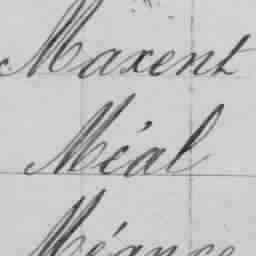 Maxent
Méal
Méance